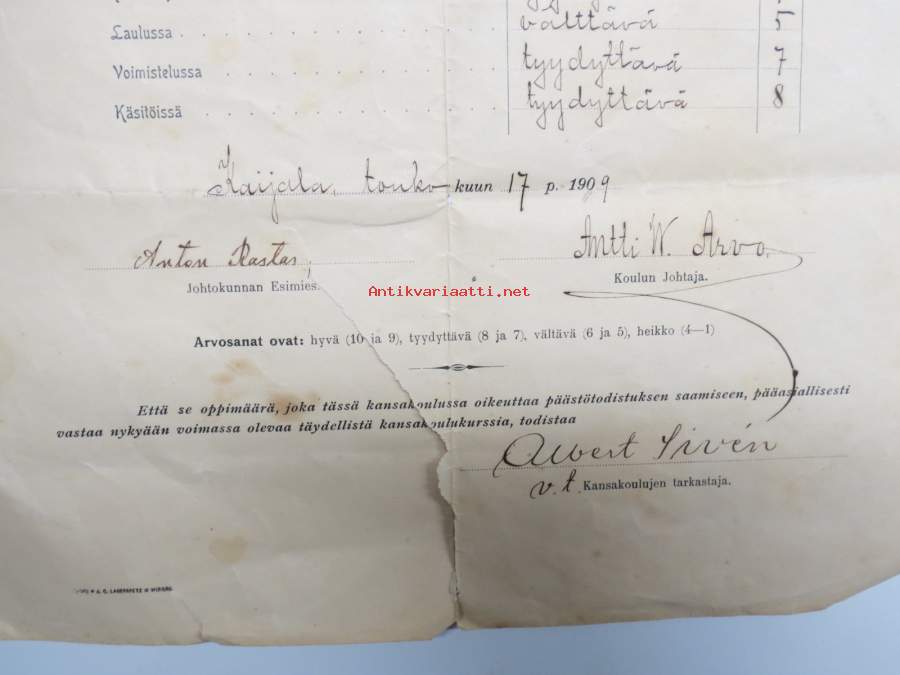 Laulussa välttävä 5
Voimistelussa tyydyttävä 7
Käsitöissä tyydyttävä 8
Kaijala, touko kuun 17 p. 1909
Anton Rastas, Antti W. Arvo.
Johtokunnan Esimies. Koulun Johtaja.
Antikvariaatti.net
Arvosanat ovat: hyvä (10 ja 9), tyydyttävä (8 ja 7), vältävä (6 ja 5), heikko (4—1)
Että se oppimäärä, joka tässä kansakoulussa oikeuttaa päästötodistuksen saamiseen, pääasiallisesti
vastaa nykyään voimassa olevaa täydellistä kansakoulukurssia, todistaa
Albert Sivén
v. t. Kansakoulujen tarkastaja.